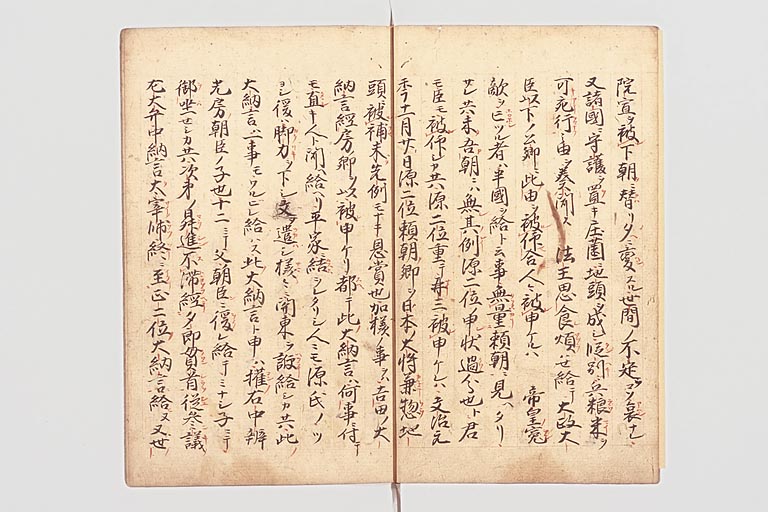 院宣ヲ被下朝ニ替リタニ変スル世間ノ不定コソ哀ナレ
又諸國ニ守護ヲ置キ庄薗ニ地頭ヲ成シ段別兵粮米ヲ
可充行之由ヲ奏聞ス 法王思食煩ハセ給テ大政大
臣以下ノ公卿ニ此由ヲ被仰合人々被申ケルハ 帝皇寃
敵ヲ亡ツル者ハ半國ヲ給ト云事無量頼朝ニ見ヘタリ
サレ共未吾朝ニハ無其例源二位申状過分也ト君
モ臣モ被仰シカ共源二位重テ再三被申ケレハ文治元
季十一月廿八日源二位頼朝卿ヲ日本大将兼惣地
頭被補未先例モナキ恩賞也加様ノ事ヲハ吉田ノ大
納言経房卿ヲ以被申ケリ都テ此大納言ハ何事ニ付テ
モ直キ人ト聞ヘ給ヘリ平家ニ結ヲシタリシ人々モ源氏ノツ
ヨリシ後ハ或脚力ヲ下シ文ヲ遣シ様々ニ関東ヲ諛給シカ共此
大納言ハ一事モヘツラヒ給ハス此大納言ト申ハ権右中辨
光房朝臣ノ子也十二ニテ父朝臣ニ後レ給テミナシ子ニテ
御坐セシカ共次第ニ昇進不滞経タ即貫首従参議
右大弁中納言大宰帥終ニ至正二位大納言給ヌ又世